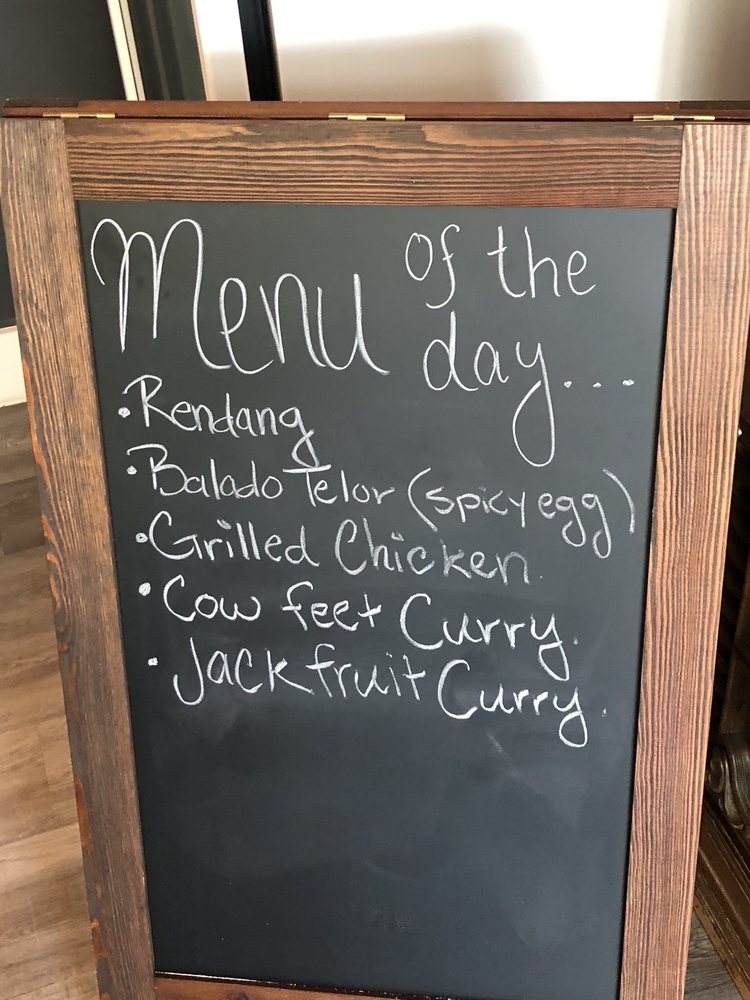 Menu of the
day...
• Rendang
• Balado Telor (spicy egg)
• Grilled Chicken.
• Cow feet Curry.
• Jackfruit Curry.